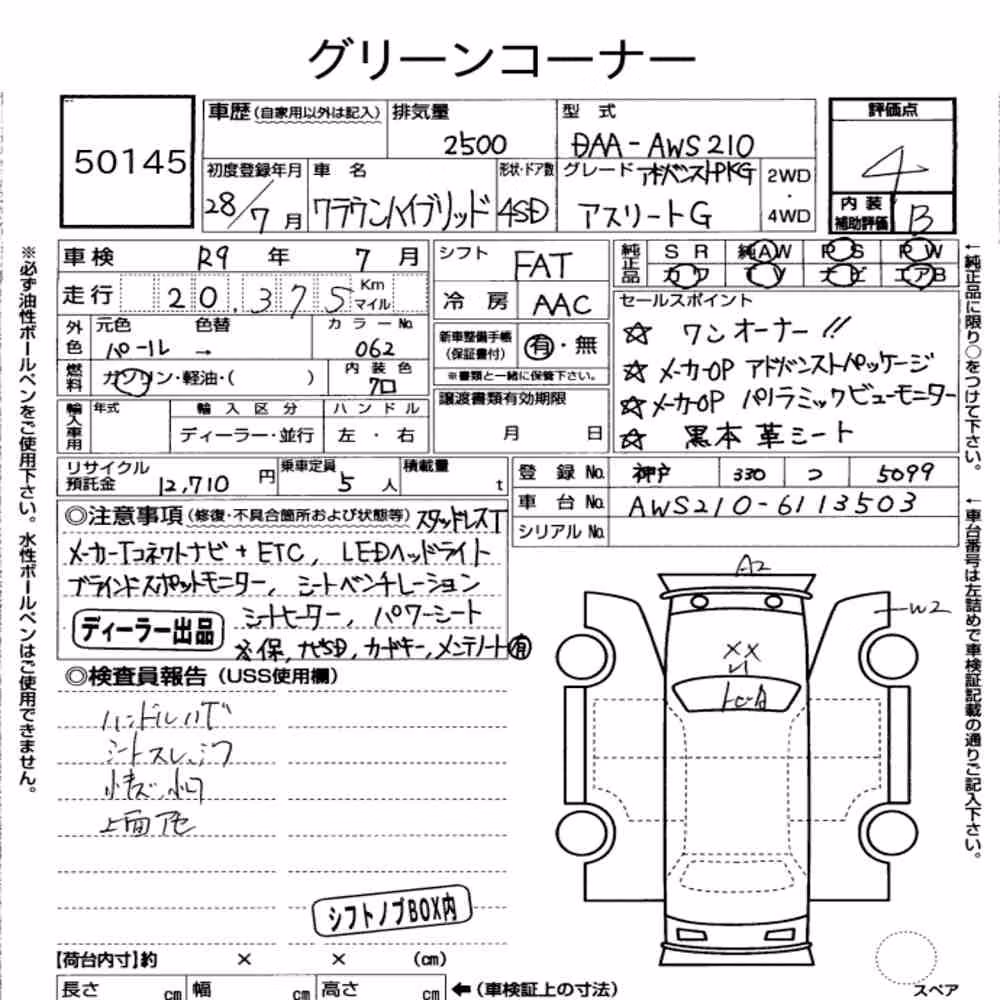 グリーンコーナー
50145
車歴(自家用以外は記入) 排気量 型式 評価点
2500 DAA-AWS210 4
初度登録年月 車名 形状・ドア数 グレード アドバンストPKG 2WD
28/7月 クラウンハイブリッド 4SD アスリートG ・ 4WD
内装補助評価 B
車検 R9年 7月 シフト FAT 純正品 SR 純AW PS PW
カワ TV ナビ エアB
走行 20,375 Km マイル 冷房 AAC セールスポイント
外色 元色 色替 カラーNo.
パール → 062
新車整備手帳(保証書付) 有・無
※書類と一緒に保管下さい。
☆ ワンオーナー!!
☆ メーカーOP アドバンストパッケージ
☆ メーカーOP パノラミックビューモニター
☆ 黒本革シート
燃料 ガソリン・軽油・( ) 内装色 クロ
譲渡書類有効期限
月 日
輸入車用 年式 輸入区分 ハンドル
ディーラー・並行 左・右
リサイクル預託金 12,710円 乗車定員 5人 積載量 t
登録No. 神戸 330 つ 5099
車台No. AWS210-6113503
シリアルNo.
◎注意事項(修復・不具合箇所および状態等) スタッドレスT
メーカーTコネクトナビ+ETC, LEDヘッドライト
ブラインドスポットモニター, シートベンチレーション
シートヒーター, パワーシート
ディーラー出品
※保, ナビSD, カードキー, メンテノート有
◎検査員報告(USS使用欄)
ハンドルハゲ
シートスレ、シワ
小キズ・小凹
上面アセ
シフトノブBOX内
A2
W2
XX
【荷台内寸】約 × × (cm)
長さ cm 幅 cm 高さ cm ←(車検証上の寸法)
スペア
※必ず油性ボールペンをご使用下さい。水性ボールペンはご使用できません。
←純正品に限り○をつけて下さい。
←車台番号は左詰めで車検証記載の通りご記入下さい。